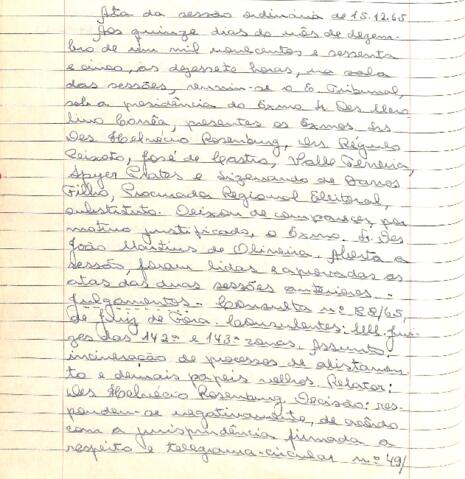 Ata da sessão ordinária de 15.12.65
Aos quinze dias do mês de dezem-
bro de um mil novecentos e sessenta
e cinco, às dezessete horas, na sala
das sessões, reuniu-se o E. Tribunal,
sob a presidência do Exmo Sr. Des Mero
lino Corrêa, presentes os Exmos. Srs
Des Helvécio Rosenburg, Drs Régulo
Peixoto, José de Castro, Valle Ferreira,
Spyer Prates e Lizenando de Barros
Filho, Procurador Regional Eleitoral,
substituto. Deixou de comparecer, por
motivo justificado, o Exmo. Sr. Des
João Martins de Oliveira. Aberta a
sessão, foram lidas e aprovadas as
atas das duas sessões anteriores. -
Julgamentos - Consulta nº 88/65,
de Juiz de Fora. Consulentes: MM. Juí-
zes das 142ª e 143ª zonas. Assunto:
incineração de processos de alistamen-
to e demais papéis velhos. Relator:
Des Helvécio Rosenburg. Decisão: res-
pondeu-se negativamente, de acôrdo
com a jurisprudência firmada a
respeito e telegrama-circular nº 49/